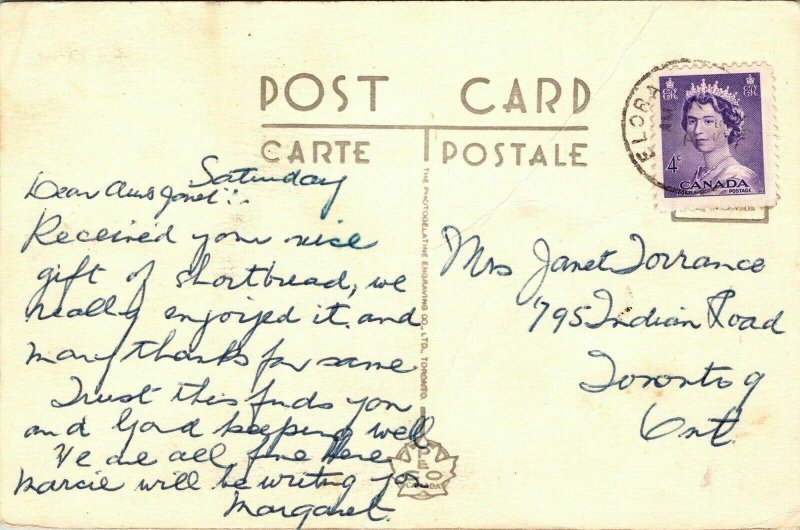 POST CARD
CARTE POSTALE
ELORA
AM
4¢
CANADA
POSTES POSTAGE
Saturday
Dear Aunt Janet:-
Received your nice
gift of shortbread, we
really enjoyed it and
many thanks for same
Trust this finds you
and Gord keeping well
We are all fine here
Marcie will be writing you
Margaret.
THE PHOTOGELATINE ENGRAVING CO., LTD., TORONTO.
CANADA
Mrs Janet Torrance
795 Indian Road
Toronto 9
Ont.